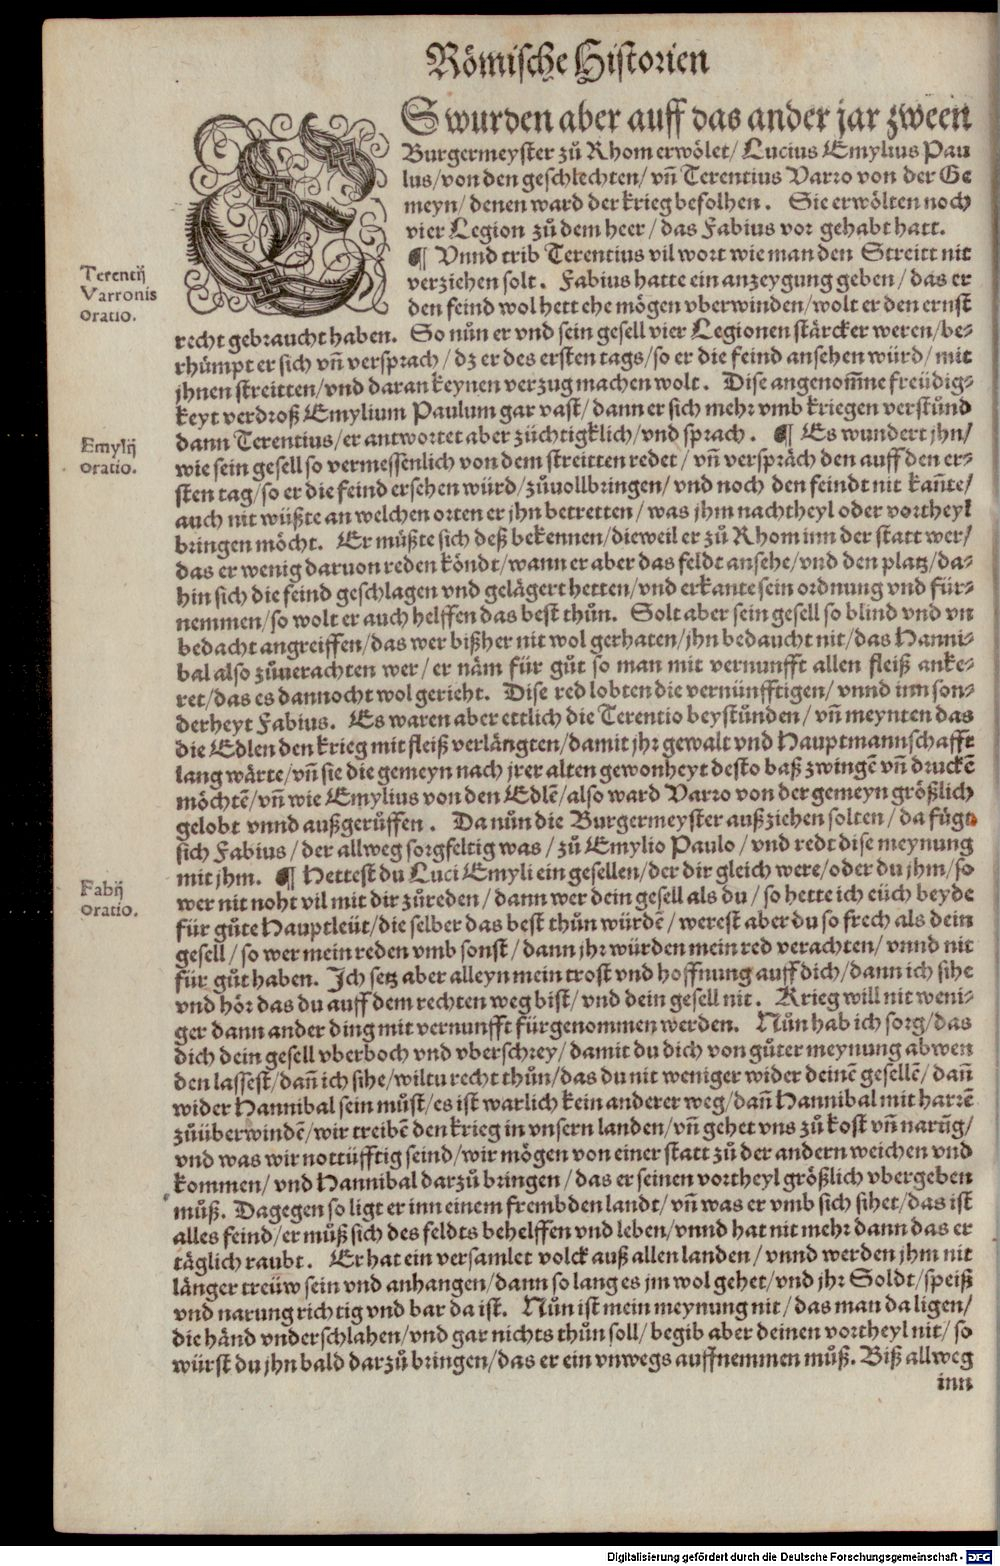 Römische Historien
ES wurden aber auff das ander jar zween
Burgermeyster zů Rhom erwölet/ Lucius Emylius Pau
lus/ von den geschlechten/ vñ Terentius Varro von der Ge
meyn/ denen ward der krieg befolhen. Sie erwölten noch
vier Legion zů dem heer/ das Fabius vor gehabt hatt.
¶ Vnnd trib Terentius vil wort wie man den Streitt nit
verziehen solt. Fabius hatte ein anzeygung geben/ das er
den feind wol hett ehe mögen vberwinden/ wolt er den ernst
Terentij
Varronis
oratio.
recht gebraucht haben. So nůn er vnd sein gesell vier Legionen stärcker weren/ be-
rhůmpt er sich vñ versprach/ dz er des ersten tags/ so er die feind ansehen würd/ mit
jhnen streitten/ vnd daran keynen verzug machen wolt. Dise angenom̃ne freüdig-
keyt verdroß Emylium Paulum gar vast/ dann er sich mehr vmb kriegen verstůnd
dann Terentius/ er antwortet aber züchtigklich/ vnd sprach. ¶ Es wundert jhn/
Emylij
oratio.
wie sein gesell so vermessenlich von dem streitten redet/ vñ verspräch den auff den er-
sten tag/ so er die feind ersehen würd/ zůvollbringen/ vnd noch den feindt nit kañte/
auch nit wüßte an welchen orten er jhn betretten/ was jhm nachtheyl oder vortheyl
bringen möcht. Er můßte sich deß bekennen/ dieweil er zů Rhom inn der statt wer/
das er wenig daruon reden köndt/ wann er aber das feldt ansehe/ vnd den platz/ da-
hin sich die feind geschlagen vnd gelägert hetten/ vnd erkante sein ordnung vnd für-
nemmen/ so wolt er auch helffen das best thůn. Solt aber sein gesell so blind vnd vn
bedacht angreiffen/ das wer bißher nit wol gerhaten/ jhn bedaucht nit/ das Hanni-
bal also zůuerachten wer/ er näm für gůt so man mit vernunfft allen fleiß anke-
ret/ das es dannocht wol gerieht. Dise red lobten die vernünfftigen/ vnnd inn son-
derheyt Fabius. Es waren aber ettlich die Terentio beystůnden/ vñ meynten das
die Edlen den krieg mit fleiß verlängten/ damit jhr gewalt vnd Hauptmannschafft
lang wärte/ vñ sie die gemeyn nach jrer alten gewonheyt desto baß zwingẽ vñ druckẽ
möchtẽ/ vñ wie Emylius von den Edlẽ/ also ward Varro von der gemeyn größlich
gelobt vnnd außgerůffen. Da nůn die Burgermeyster außziehen solten/ da fůgt
sich Fabius/ der allweg sorgfeltig was/ zů Emylio Paulo/ vnd redt dise meynung
mit jhm. ¶ Hettest du Luci Emyli ein gesellen/ der dir gleich were/ oder du jhm/ so
Fabij
oratio.
wer nit noht vil mit dir zůreden/ dann wer dein gesell als du/ so hette ich eüch beyde
für gůte Hauptleüt/ die selber das best thůn würdẽ/ werest aber du so frech als dein
gesell/ so wer mein reden vmb sonst/ dann jhr würden mein red verachten/ vnnd nit
für gůt haben. Ich setz aber alleyn mein trost vnd hoffnung auff dich/ dann ich sihe
vnd hör das du auff dem rechten weg bist/ vnd dein gesell nit. Krieg will nit weni-
ger dann ander ding mit vernunfft fürgenommen werden. Nůn hab ich sorg/ das
dich dein gesell vberboch vnd vberschrey/ damit du dich von gůter meynung abwen
den lassest/ dañ ich sihe/ wiltu recht thůn/ das du nit weniger wider deinẽ gesellẽ/ dañ
wider Hannibal sein můst/ es ist warlich kein anderer weg/ dañ Hannibal mit harrẽ
zůüberwindẽ/ wir treibẽ den krieg in vnsern landen/ vñ gehet vns zů kost vñ narũg/
vnd was wir nottüfftig seind/ wir mögen von einer statt zů der andern weichen vnd
kommen/ vnd Hannibal darzů bringen/ das er seinen vortheyl größlich vbergeben
můß. Dagegen so ligt er inn einem frembden landt/ vñ was er vmb sich sihet/ das ist
alles feind/ er můß sich des feldts behelffen vnd leben/ vnnd hat nit mehr dann das er
täglich raubt. Er hat ein versamlet volck auß allen landen/ vnnd werden jhm nit
länger treüw sein vnd anhangen/ dann so lang es jm wol gehet/ vnd jhr Soldt/ speiß
vnd narung richtig vnd bar da ist. Nůn ist mein meynung nit/ das man da ligen/
die händ vnderschlahen/ vnd gar nichts thůn soll/ begib aber deinen vortheyl nit/ so
würst du jhn bald darzů bringen/ das er ein vnwegs auffnemmen můß. Biß allweg
inn
Digitalisierung gefördert durch die Deutsche Forschungsgemeinschaft - DFG